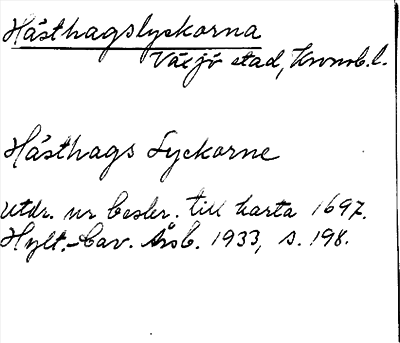 Hästhagslyckorna
Växjö stad, Kronob. l.
Hästhags Lyckorne
Utdr. ur beskr. till karta 1697.
Hylt.-Cav. Årsb. 1933, s. 198.